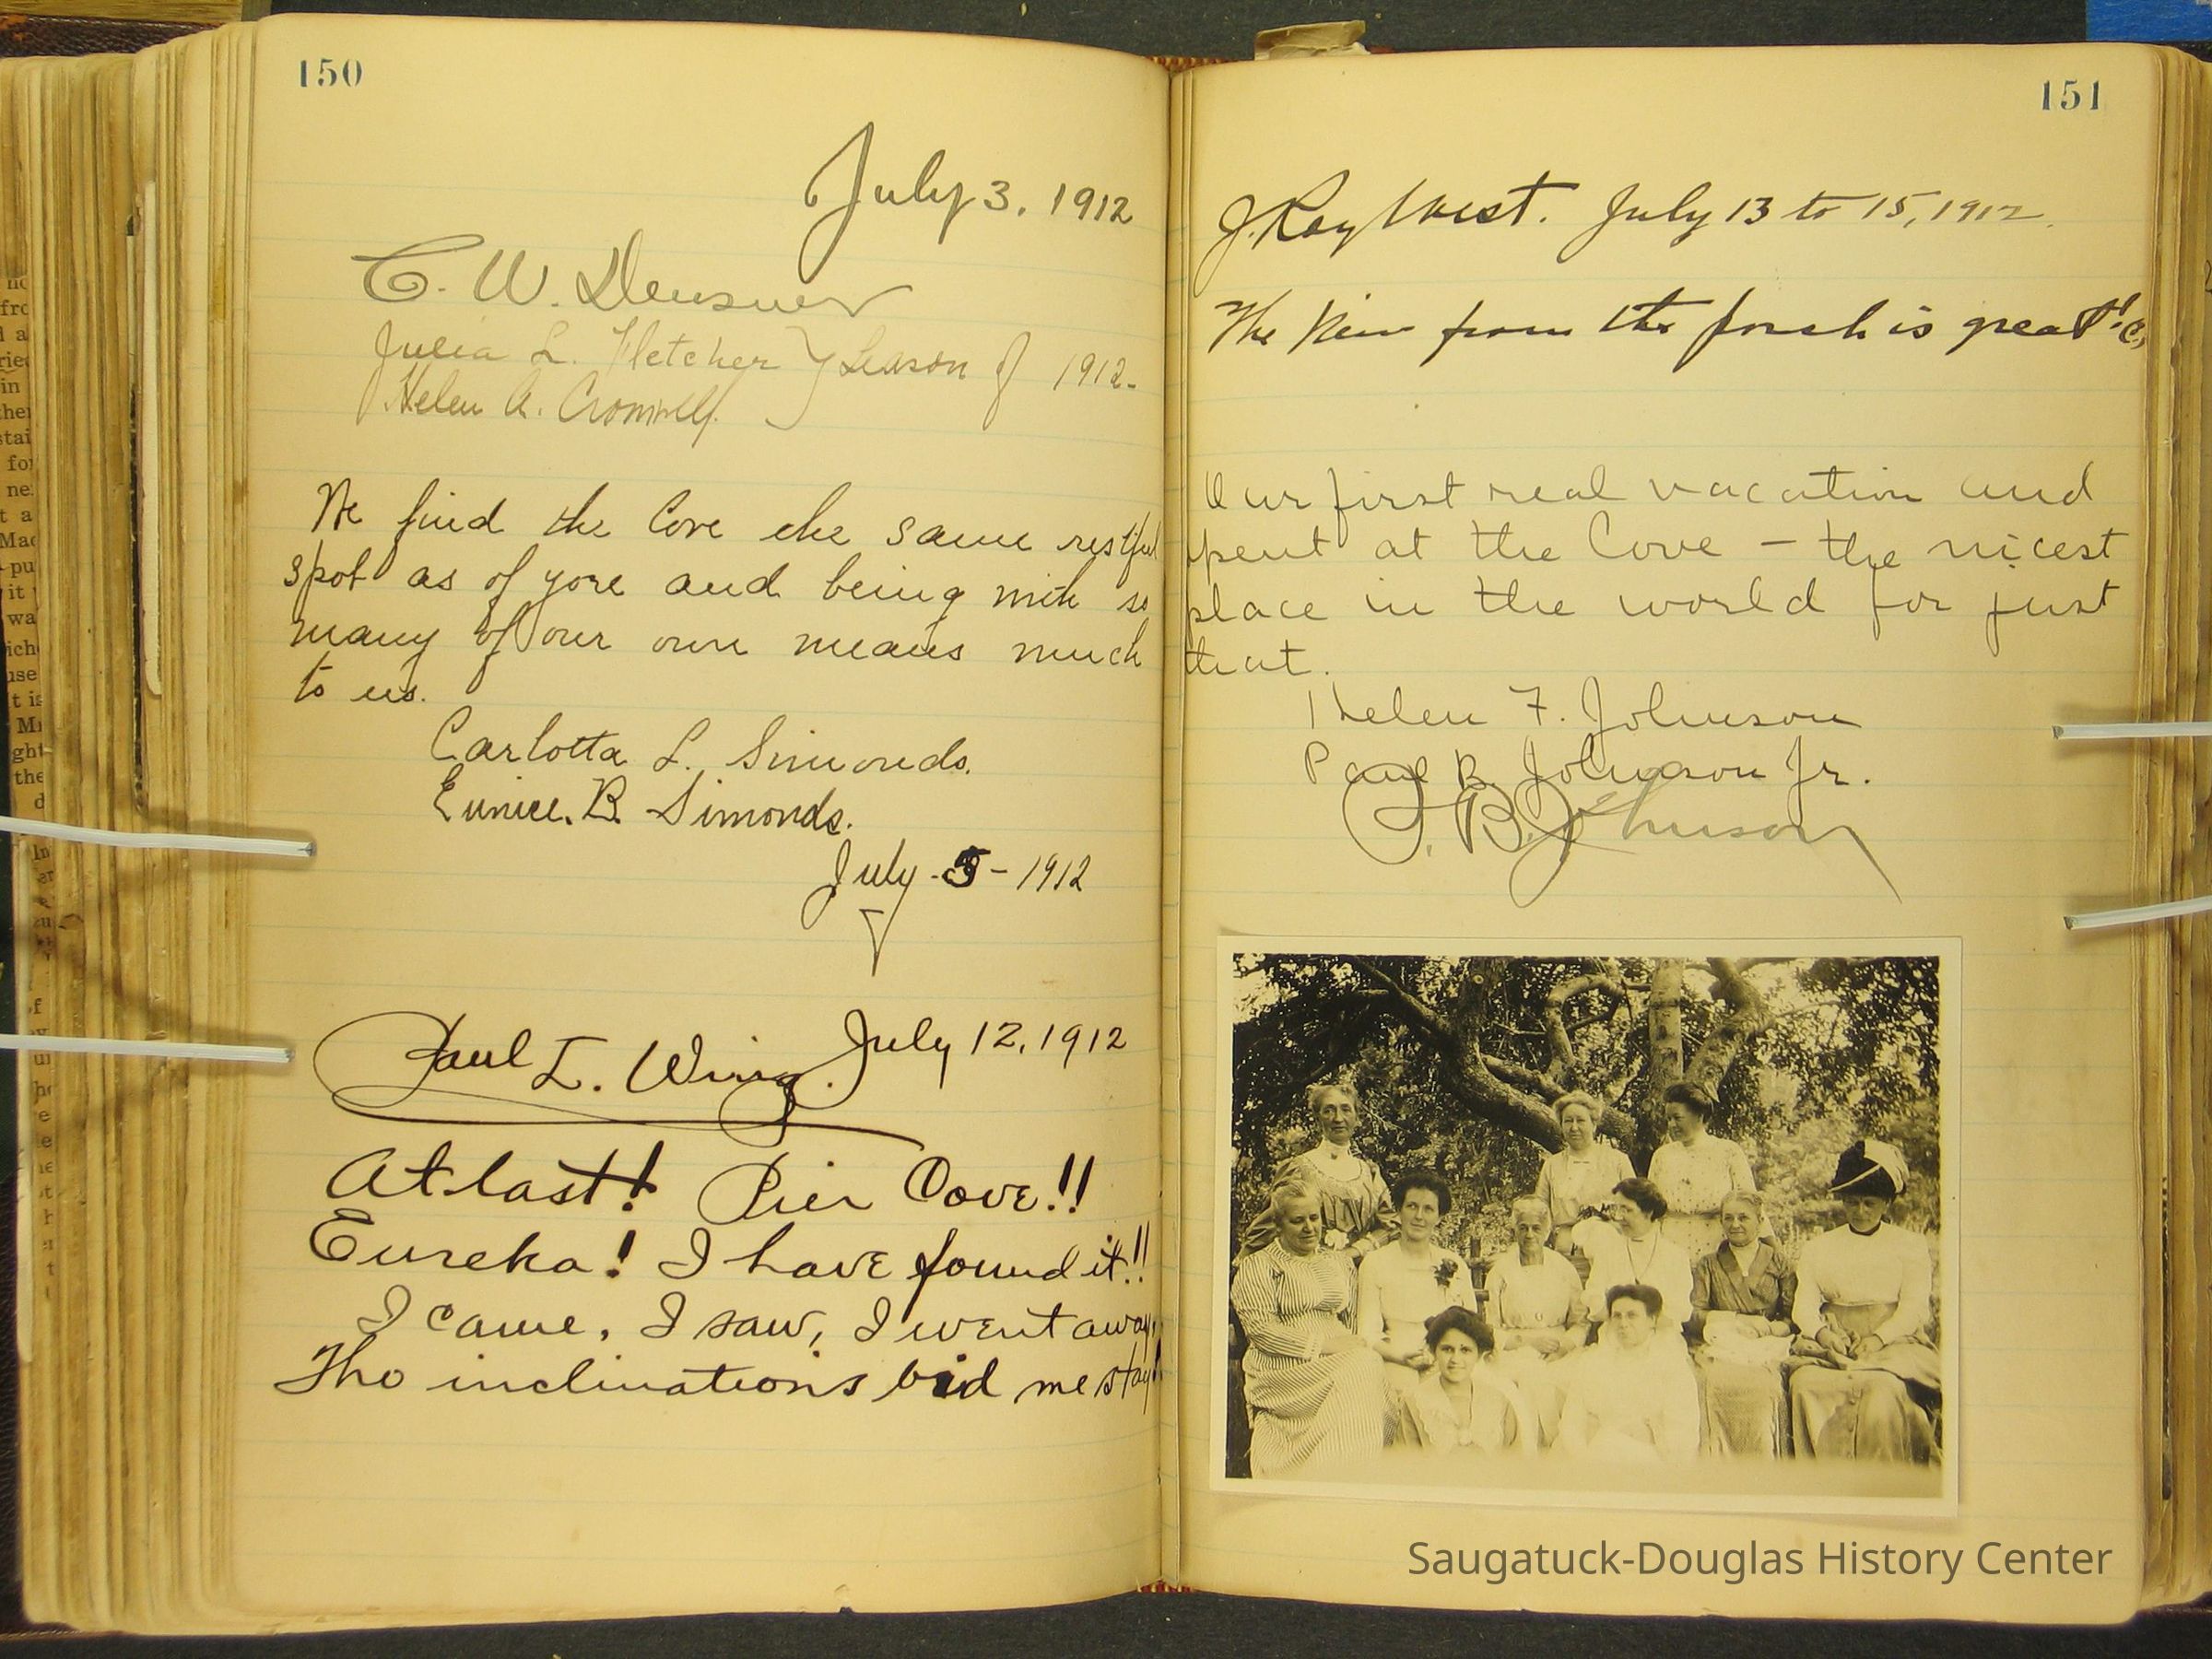 150
July 3, 1912
C. W.
Julia L. Fletcher } Season of 1912-
Helen A. Cromwell.
We find the Cove the same restful
spot as of yore and being with so
many of our own means much
to us.
Carlotta L. Simonds.
Eunice. B. Simonds.
July - 5 - 1912
Paul L. Wing. July 12, 1912
At last! Pier Cove!!
Eureka! I have found it!!
I came, I saw, I went away,
Tho inclinations bid me stay!
151
J. Ray West. July 13 to 15, 1912.
The View from the porch is great!
Our first real vacation and
spent at the Cove - the nicest
place in the world for just
that.
Helen F. Johnson
Paul B. Johnson Jr.
P. B. Johnson
Saugatuck-Douglas History Center